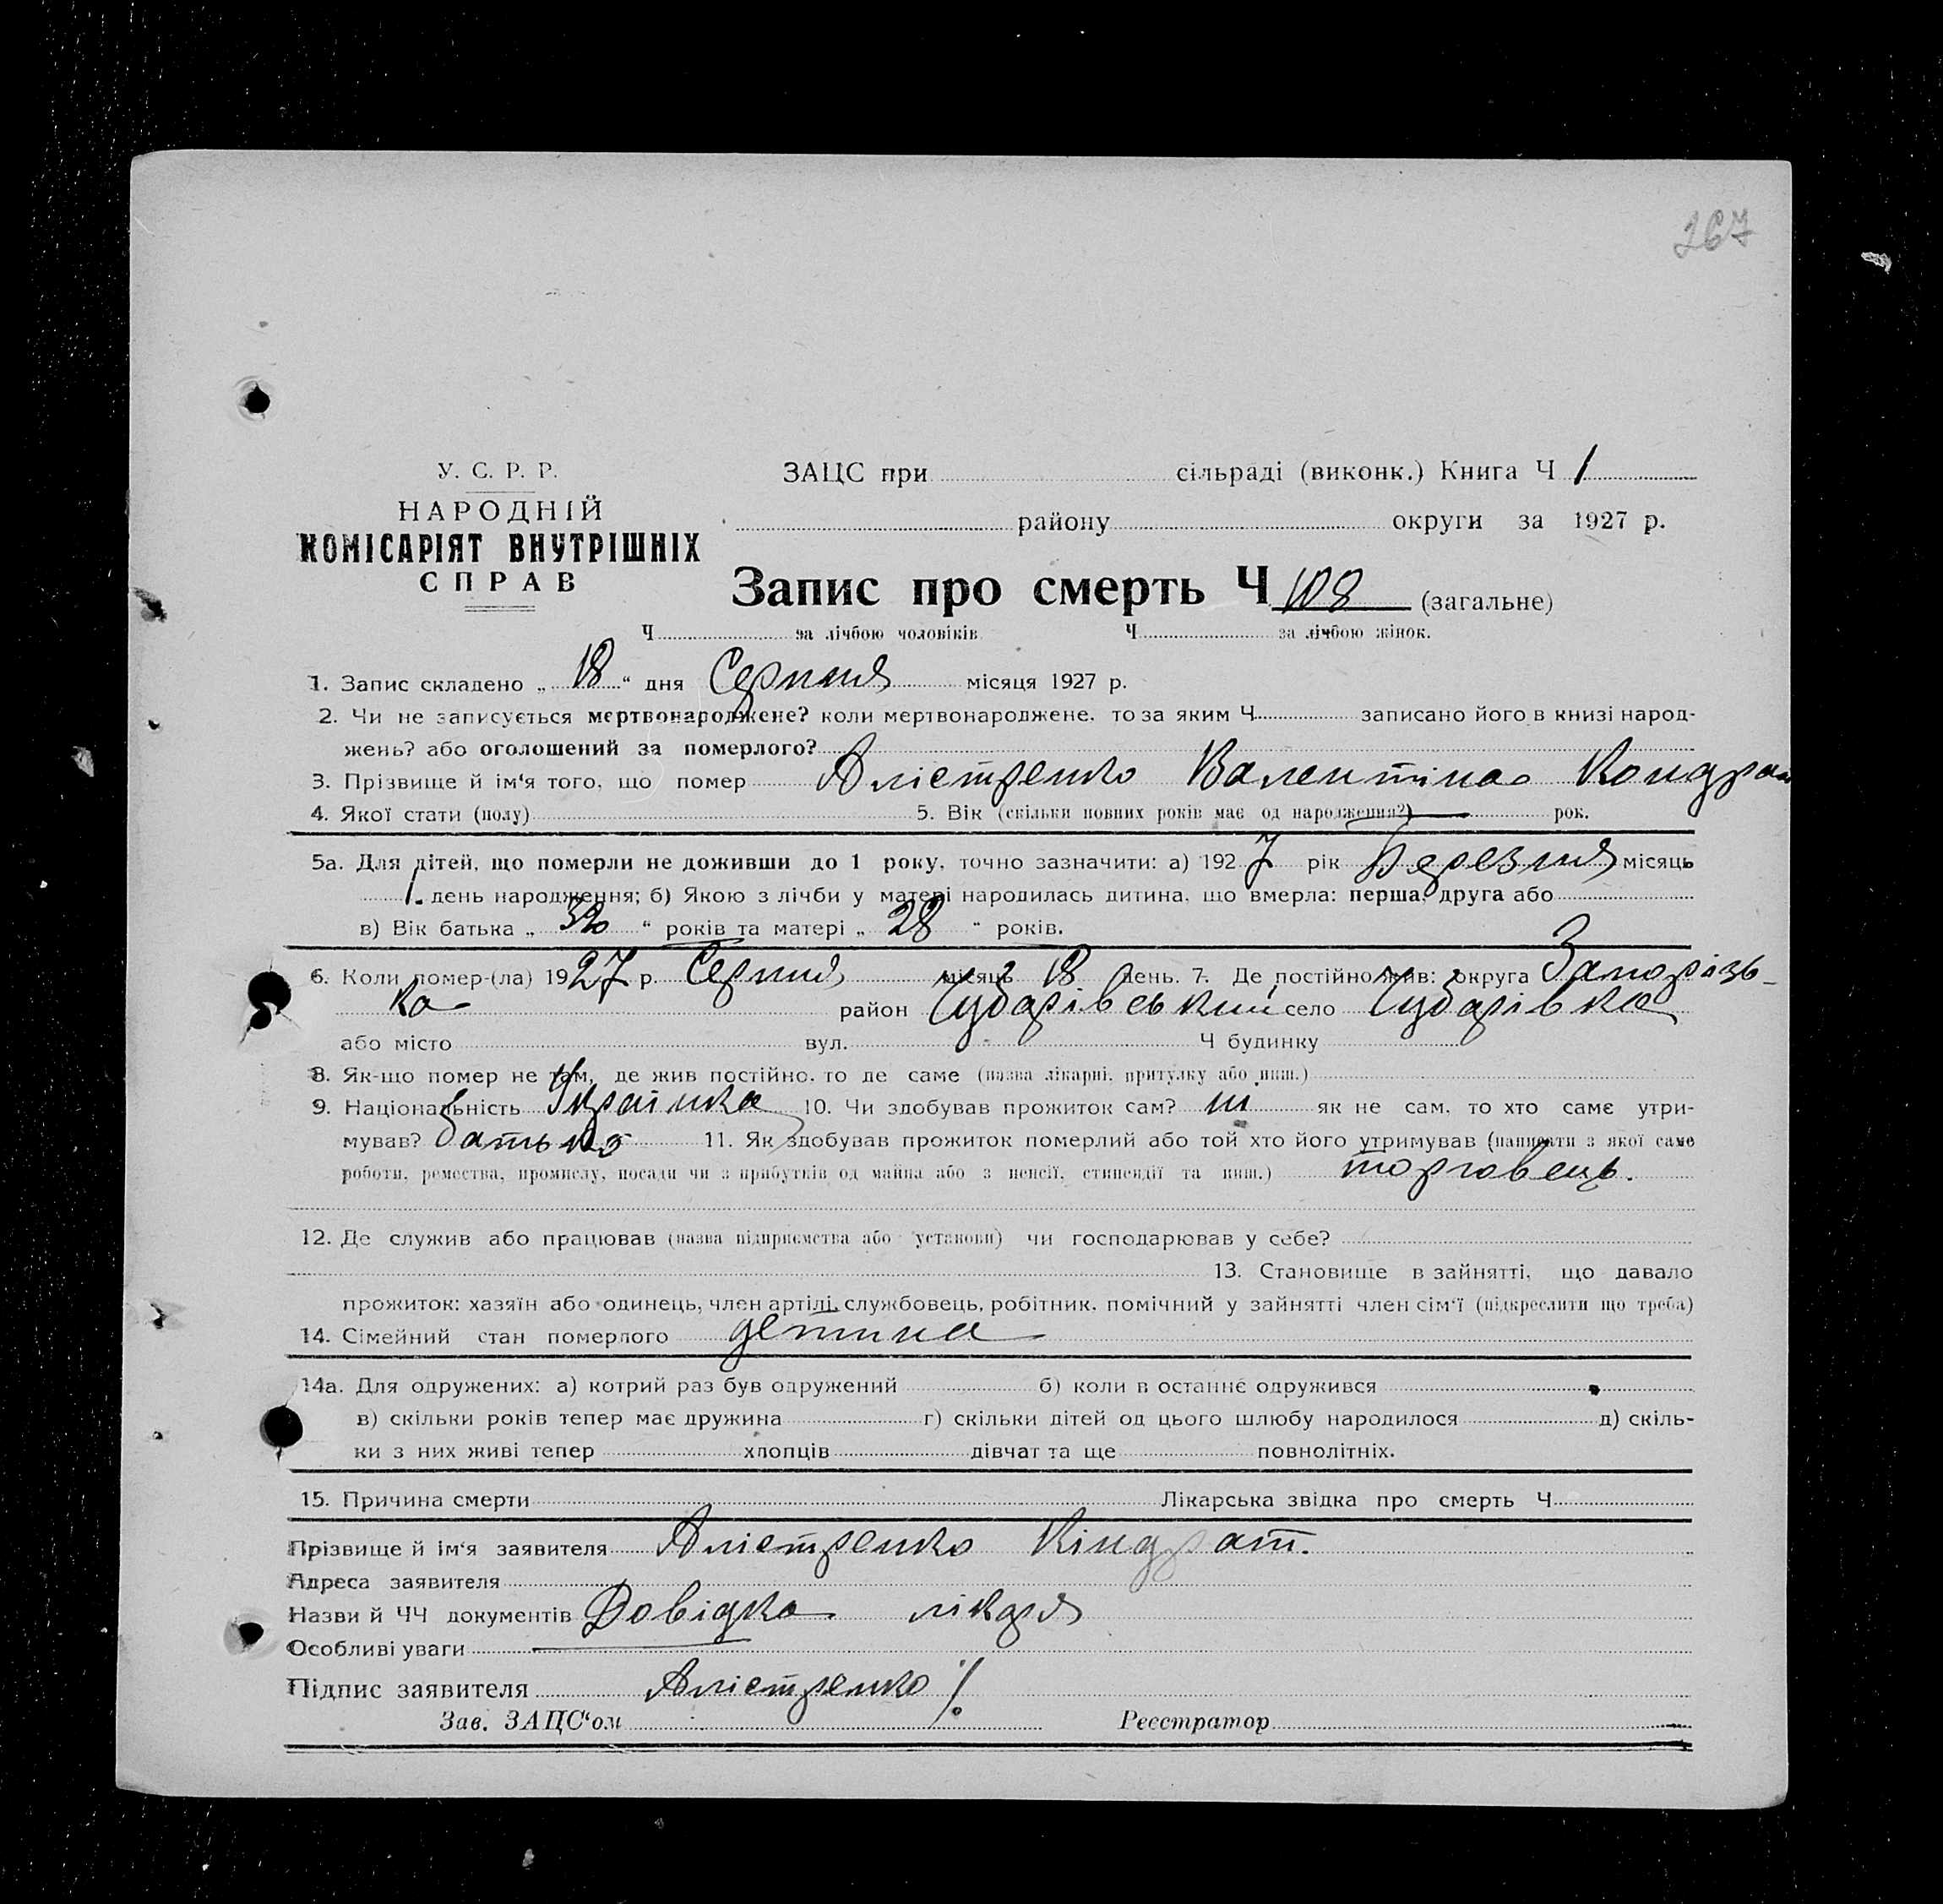 267
У. С. Р. Р.
НАРОДНІЙ
КОМІСАРІЯТ ВНУТРІШНІХ
СПРАВ
ЗАЦС при сільраді (виконк.) Книга Ч 1
району округи за 1927 р.
Запис про смерть Ч 108 (загальне)
Ч за лічбою чоловіків Ч за лічбою жінок.
1. Запис складено „ 18 “ дня Серпня місяця 1927 р.
2. Чи не записується мертвонароджене? коли мертвонароджене, то за яким Ч записано його в книзі народ-
жень? або оголошений за померлого?
3. Прізвище й ім'я того, що помер Алістренко Валентина Кондрат
4. Якої стати (полу) 5. Вік (скільки повних років має од народження?) рок.
5а. Для дітей, що померли не доживши до 1 року, точно зазначити: а) 1927 рік Березня місяць
1 день народження; б) Якою з лічби у матері народилась дитина, що вмерла: перша, друга або
в) Вік батька „ “ років та матері „ 28 “ років.
6. Коли помер-(ла) 1927 р. Серпня місяць 18 день. 7. Де постійно жив: округа Запорізь-
ка район Чубарівський село Чубарівка
або місто вул. Ч будинку
8. Як-що помер не там, де жив постійно, то де саме (назва лікарні, притулку або инш.)
9. Національність Українка 10. Чи здобував прожиток сам? ні як не сам, то хто саме утри-
мував? батько 11. Як здобував прожиток померлий або той хто його утримував (написати з якої саме
роботи, ремества, промислу, посади чи з прибутків од майна або з пенсії, стипендії та инш.) торговець.
12. Де служив або працював (назва підприємства або установи) чи господарював у себе?
13. Становище в зайнятті, що давало
прожиток: хазяїн або одинець, член артілі, службовець, робітник, помічний у зайнятті член сім'ї (підкреслити що треба)
14. Сімейний стан померлого детина
14а. Для одружених: а) котрий раз був одружений б) коли в останнє одружився
в) скільки років тепер має дружина г) скільки дітей од цього шлюбу народилося д) скіль-
ки з них живі тепер хлопців дівчат та ще повнолітніх.
15. Причина смерти Лікарська звідка про смерть Ч
Прізвище й ім'я заявителя Алістренко Кіндрат.
Адреса заявителя
Назви й ЧЧ документів Довідка лікаря
Особливі уваги
Підпис заявителя Алістренко
Зав. ЗАЦС'ом Реєстратор